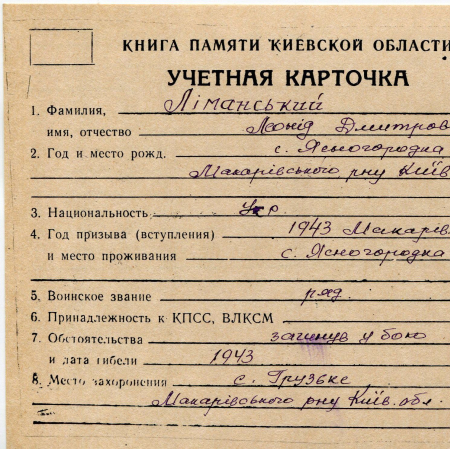 КНИГА ПАМЯТИ КИЕВСКОЙ ОБЛАСТИ
УЧЕТНАЯ КАРТОЧКА
1. Фамилия, Ліманський
имя, отчество Леонід Дмитров
2. Год и место рожд. с. Ясногородка
Макарівського р-ну Київ
3. Национальность Укр
4. Год призыва (вступления) 1943 Макарів
и место проживания с. Ясногородка
5. Воинское звание ряд.
6. Принадлежность к КПСС, ВЛКСМ
7. Обстоятельства загинув у бою
и дата гибели 1943
8. Место захоронения с. Грузьке
Макарівського р-ну Київ. обл.